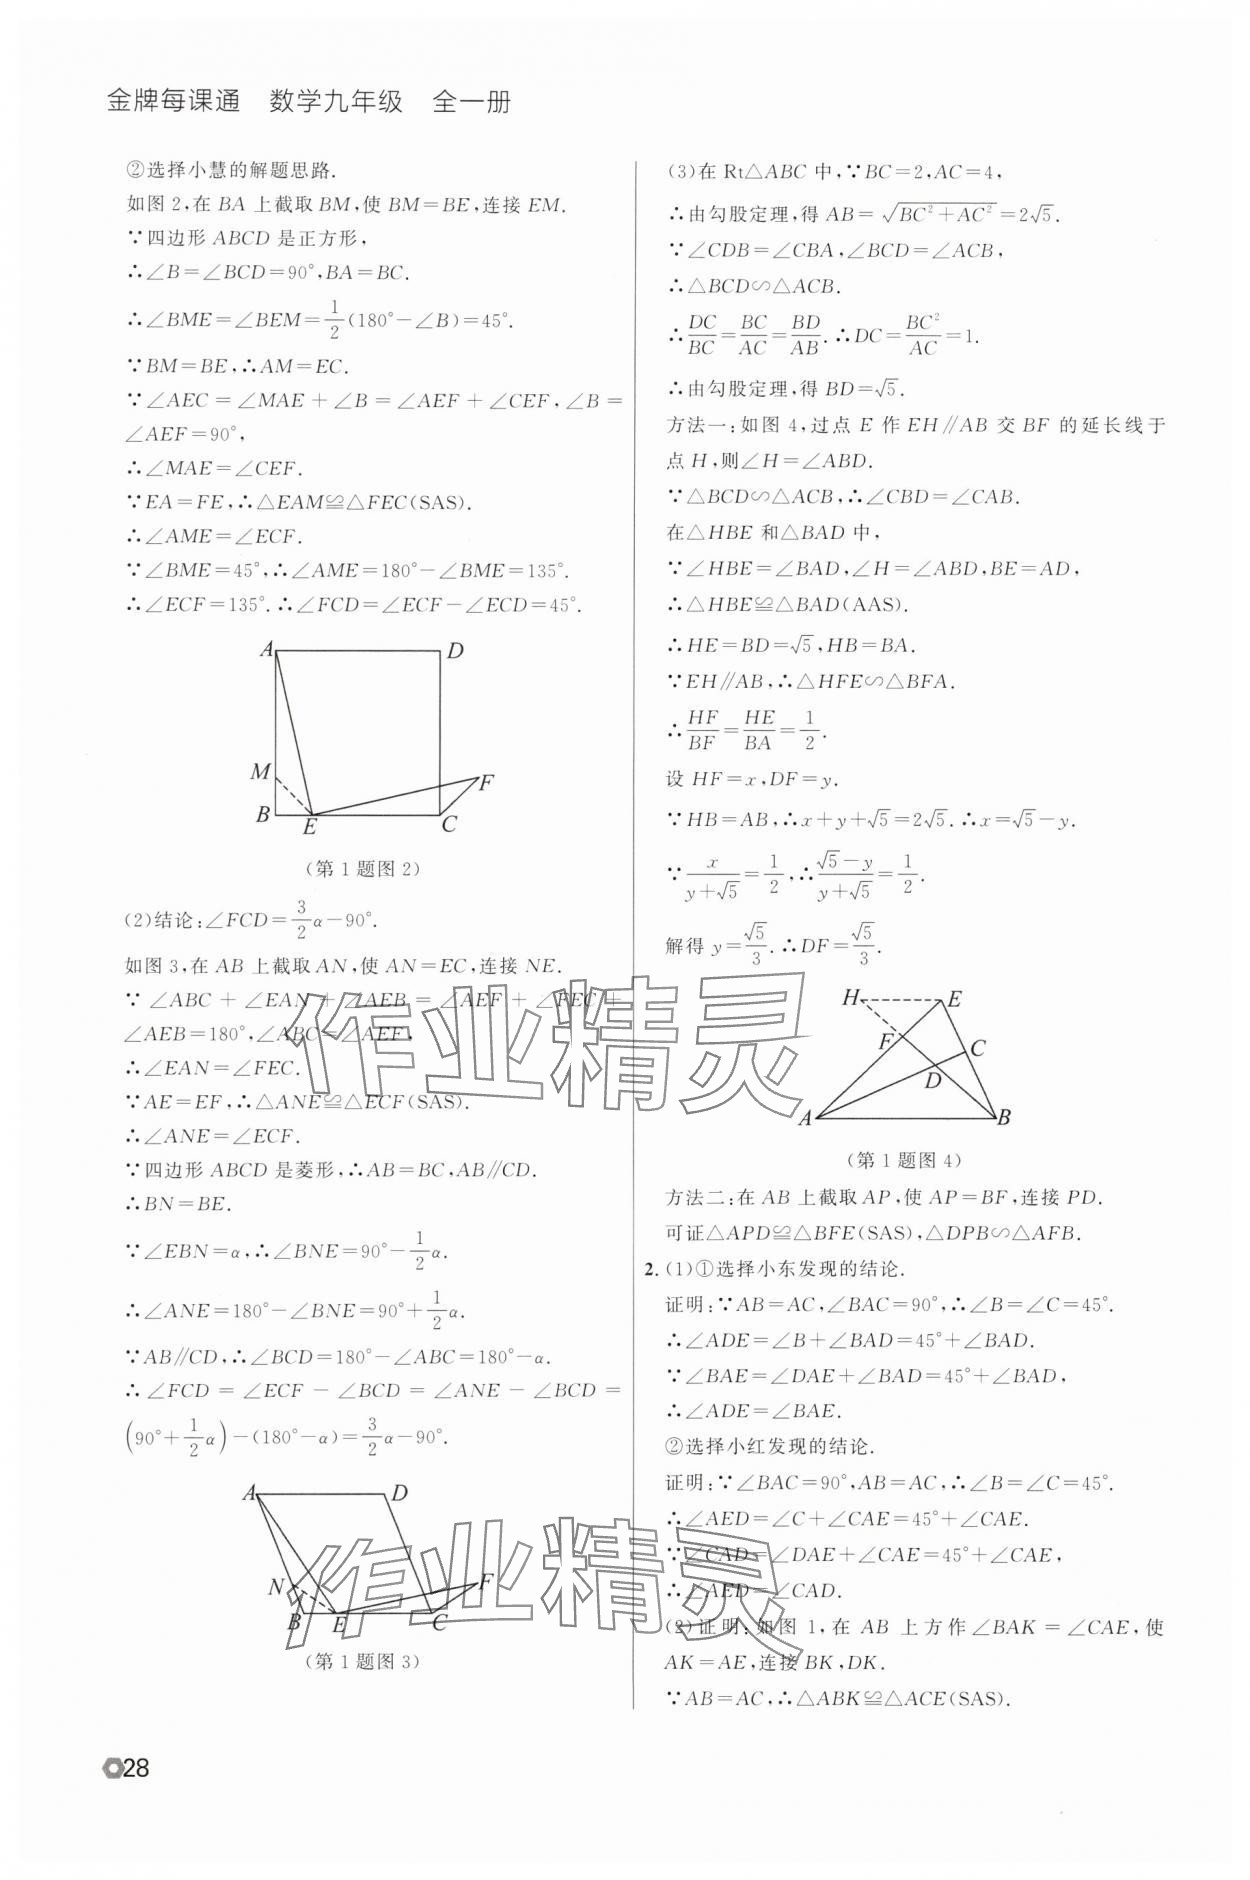 金牌每课通 数学九年级 全一册
②选择小慧的解题思路.
如图2,在BA上截取BM,使BM=BE,连接EM.
∵四边形ABCD是正方形,
∴∠B=∠BCD=90°,BA=BC.
∴∠BME=∠BEM=1/2(180°-∠B)=45°.
∵BM=BE,∴AM=EC.
∵∠AEC=∠MAE+∠B=∠AEF+∠CEF,∠B=
∠AEF=90°,
∴∠MAE=∠CEF.
∵EA=FE,∴△EAM≌△FEC(SAS).
∴∠AME=∠ECF.
∵∠BME=45°,∴∠AME=180°-∠BME=135°.
∴∠ECF=135°.∴∠FCD=∠ECF-∠ECD=45°.
A D
M F
B E C
(第1题图2)
(2)结论:∠FCD=3/2α-90°.
如图3,在AB上截取AN,使AN=EC,连接NE.
∵∠ABC+∠EAN+∠AEB=∠AEF+∠FEC+
∠AEB=180°,∠ABC=∠AEF,
∴∠EAN=∠FEC.
∵AE=EF,∴△ANE≌△ECF(SAS).
∴∠ANE=∠ECF.
∵四边形ABCD是菱形,∴AB=BC,AB∥CD.
∴BN=BE.
∵∠EBN=α,∴∠BNE=90°-1/2α.
∴∠ANE=180°-∠BNE=90°+1/2α.
∵AB∥CD,∴∠BCD=180°-∠ABC=180°-α.
∴∠FCD=∠ECF-∠BCD=∠ANE-∠BCD=
(90°+1/2α)-(180°-α)=3/2α-90°.
A D
N F
B E C
(第1题图3)
(3)在Rt△ABC中,∵BC=2,AC=4,
∴由勾股定理,得AB=√(BC²+AC²)=2√5.
∵∠CDB=∠CBA,∠BCD=∠ACB,
∴△BCD∽△ACB.
∴DC/BC=BC/AC=BD/AB.∴DC=BC²/AC=1.
∴由勾股定理,得BD=√5.
方法一:如图4,过点E作EH∥AB交BF的延长线于
点H,则∠H=∠ABD.
∵△BCD∽△ACB,∴∠CBD=∠CAB.
在△HBE和△BAD中,
∵∠HBE=∠BAD,∠H=∠ABD,BE=AD,
∴△HBE≌△BAD(AAS).
∴HE=BD=√5,HB=BA.
∵EH∥AB,∴△HFE∽△BFA.
∴HF/BF=HE/BA=1/2.
设HF=x,DF=y.
∵HB=AB,∴x+y+√5=2√5.∴x=√5-y.
∵x/(y+√5)=1/2,∴(√5-y)/(y+√5)=1/2.
解得y=√5/3.∴DF=√5/3.
H E
F C
D
A B
(第1题图4)
方法二:在AB上截取AP,使AP=BF,连接PD.
可证△APD≌△BFE(SAS),△DPB∽△AFB.
2.(1)①选择小东发现的结论.
证明:∵AB=AC,∠BAC=90°,∴∠B=∠C=45°.
∴∠ADE=∠B+∠BAD=45°+∠BAD.
∵∠BAE=∠DAE+∠BAD=45°+∠BAD,
∴∠ADE=∠BAE.
②选择小红发现的结论.
证明:∵∠BAC=90°,AB=AC,∴∠B=∠C=45°.
∴∠AED=∠C+∠CAE=45°+∠CAE.
∵∠CAD=∠DAE+∠CAE=45°+∠CAE,
∴∠AED=∠CAD.
(2)证明:如图1,在AB上方作∠BAK=∠CAE,使
AK=AE,连接BK,DK.
∵AB=AC,∴△ABK≌△ACE(SAS).
作业精灵
作业精灵
28